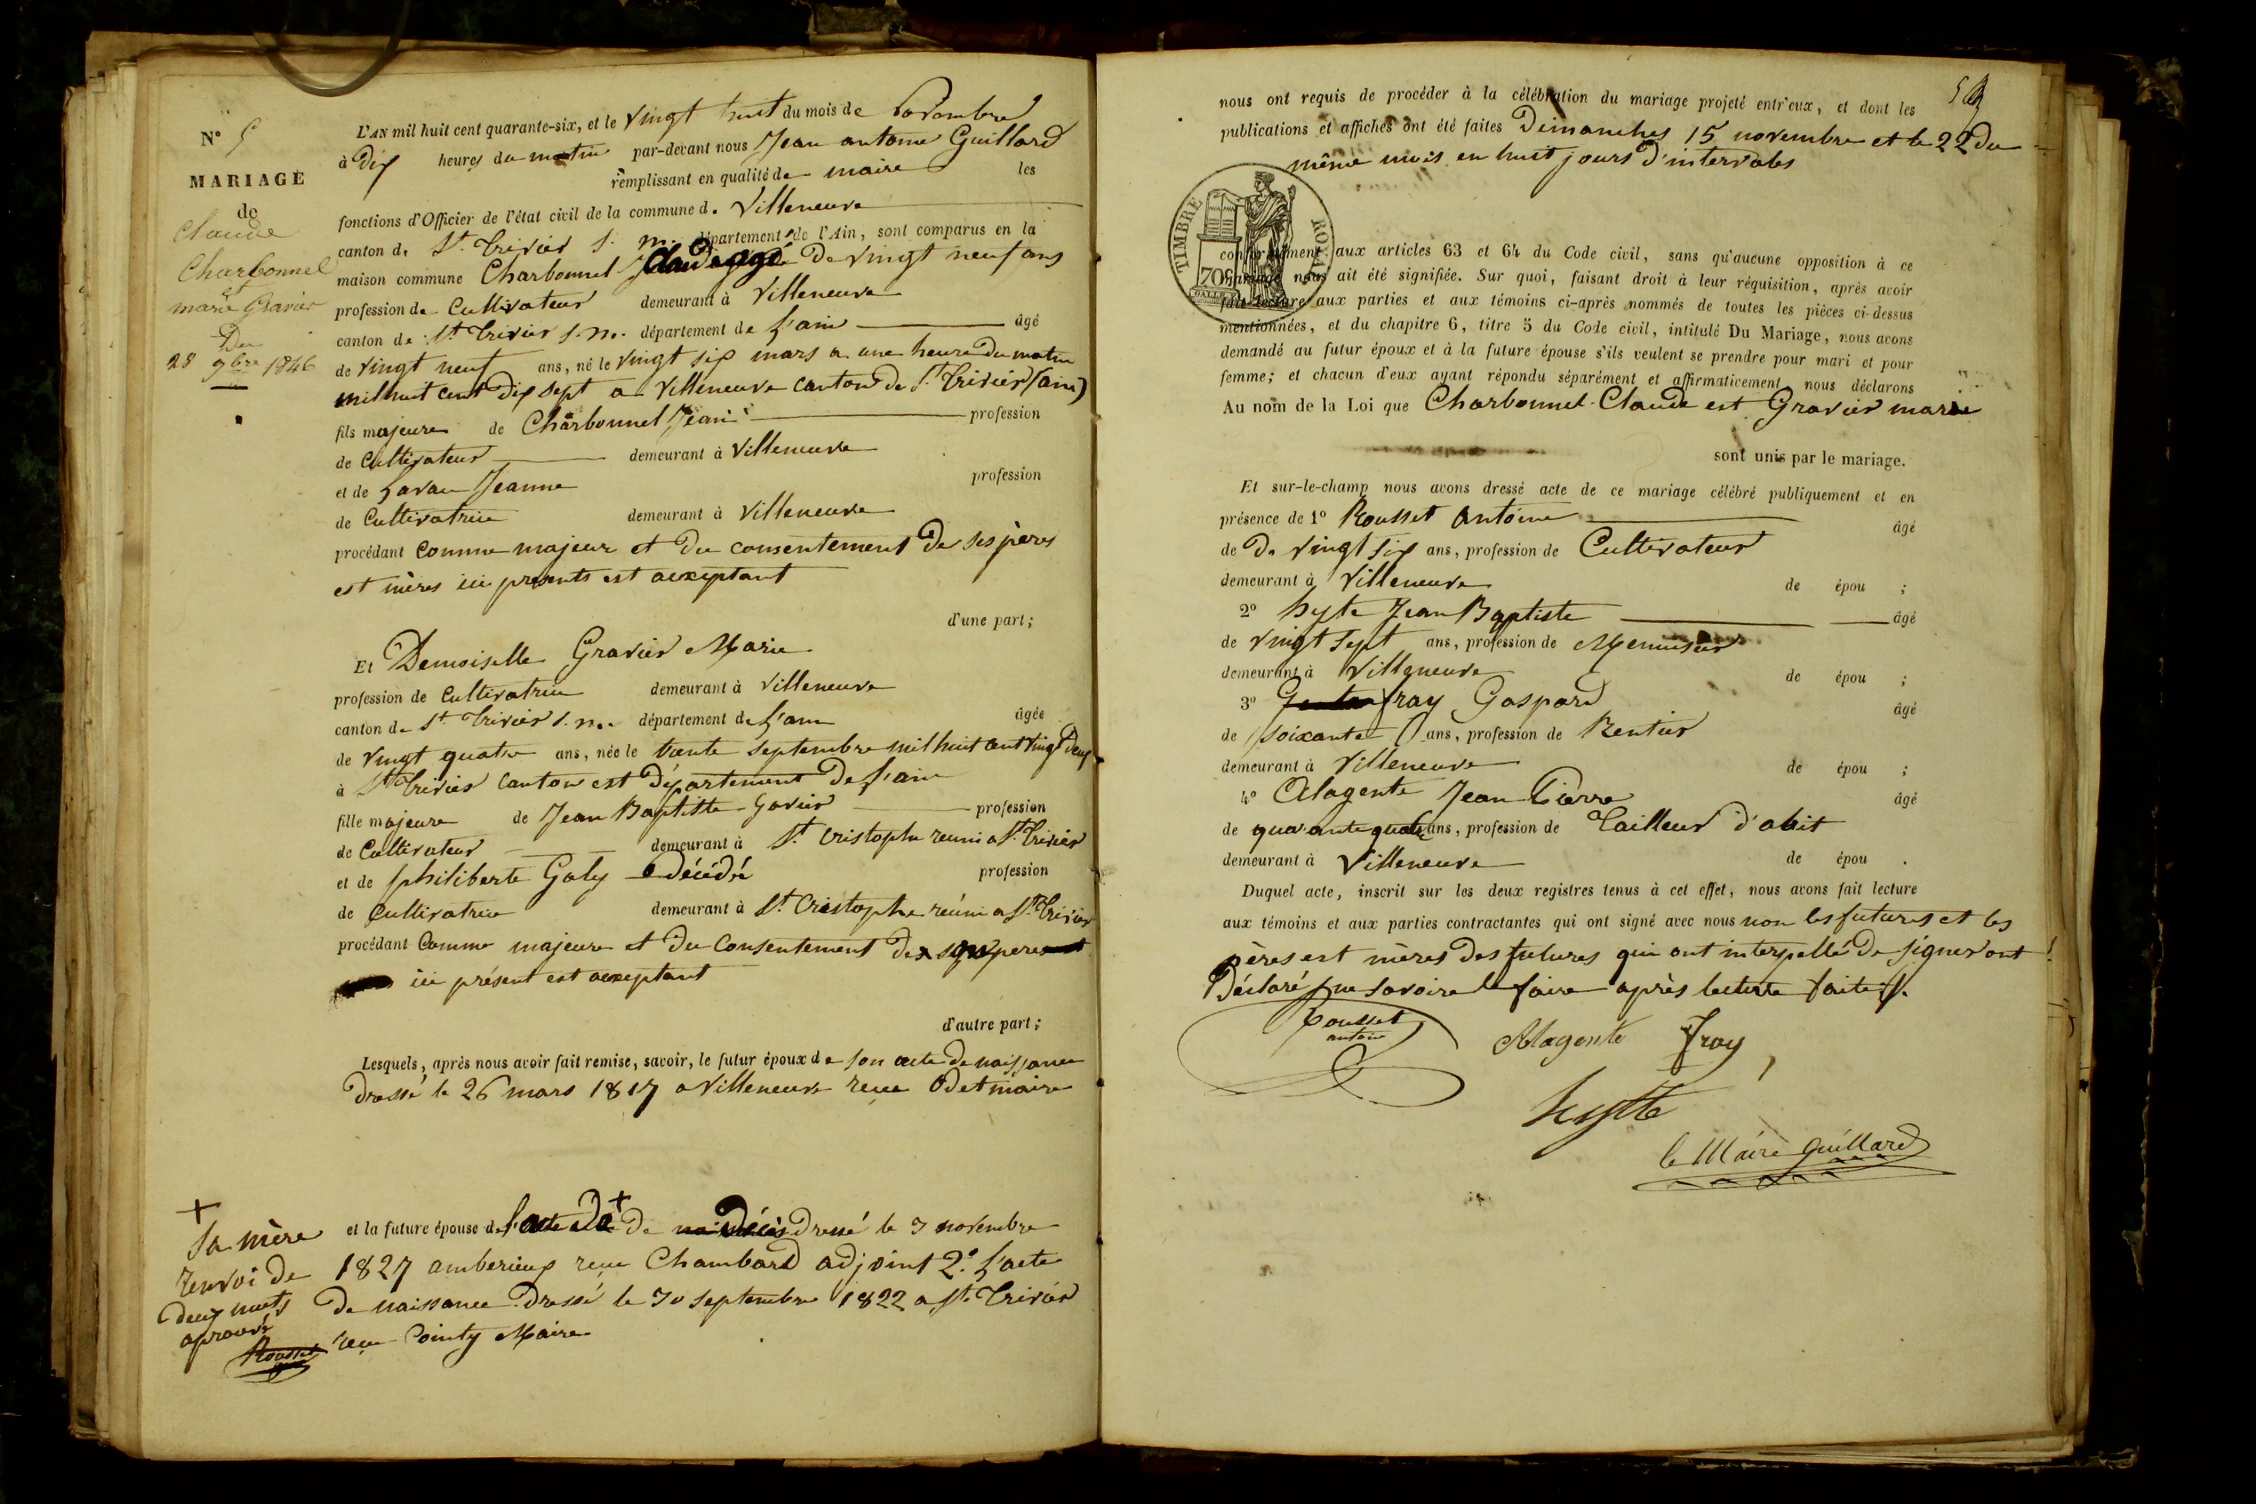 N° 5
MARIAGE
de
Claude
Charbonnel
et
marie Gravier
Du
28 9bre 1846
L'AN mil huit cent quarante-six, et le vingt huit du mois de novembre
à dix heures du matin par-devant nous Jean antoine Guillard
remplissant en qualité de maire les
fonctions d'Officier de l'état civil de la commune d. Villeneuve
canton d. St. Trivier s. m. département de l'Ain, sont comparus en la
maison commune Charbonnel Claude agé de vingt neuf ans
profession de Cultivateur demeurant à Villeneuve
canton de St Trivier s. m. département de L'ain âgé
de vingt neuf ans, né le vingt six mars a une heure du matin
mil huit cent dix sept a Villeneuve canton de St. Trivier (ain)
fils majeure de Charbonnel Jean profession
de Cultivateur demeurant à Villeneuve
et de Jeanne profession
de Cultivatrice demeurant à Villeneuve
procédant comme majeur et du consentement de ses pères
est mères ici présents est acceptant
d'une part;
Et Demoiselle Gravier Marie
profession de Cultivatrice demeurant à Villeneuve
canton de St. Trivier s. m. département de L'ain âgée
de vingt quatre ans, née le trente septembre mil huit cent vingt deux
à St Trivier canton est département de L'ain
fille majeure de Jean Baptiste Gavier profession
de Cultivateur demeurant à St. Cristophe reuni a St. Trivier
et de philiberte Galy décédé profession
de Cultivatrice demeurant à St. Cristophe réuni a St. Trivier
procédant Comme majeure et du Consentement de son pere
ici présent est acceptant
d'autre part;
Lesquels, après nous avoir fait remise, savoir, le futur époux de son acte de naissance
Dressé le 26 mars 1817 a Villeneuve reçu Odet maire
et la future épouse de l'acte de + De Décès Dressé le 3 novembre
1827 amberieux reçu Chambard adjoint 2.° L'acte
De naissance Dressé le 30 septembre 1822 a St. Trivier
reçu Cointy Maire
+
Sa mère
renvoi de
deux mots
aprouvé
Rousset
59
nous ont requis de procéder à la célébration du mariage projeté entr'eux, et dont les
publications et affiches ont été faites Dimanches 15 novembre et le 22 du
même mois en huit jours d'intervales
TIMBRE ROYAL
70c
conformément aux articles 63 et 64 du Code civil, sans qu'aucune opposition à ce
mariage nous ait été signifiée. Sur quoi, faisant droit à leur réquisition, après avoir
fait lecture aux parties et aux témoins ci-après nommés de toutes les pièces ci-dessus
mentionnées, et du chapitre 6, titre 5 du Code civil, intitulé Du Mariage, nous avons
demandé au futur époux et à la future épouse s'ils veulent se prendre pour mari et pour
femme; et chacun d'eux ayant répondu séparément et affirmativement, nous déclarons
Au nom de la Loi que Charbonnel Claude est Gravier marie
sont unis par le mariage.
Et sur-le-champ nous avons dressé acte de ce mariage célébré publiquement et en
présence de 1° Rousset antoine âgé
de De vingt six ans, profession de Cultivateur
demeurant à Villeneuve de épou ;
2° hyte Jean Baptiste âgé
de vingt sept ans, profession de Menuisier
demeurant à Villeneuve de épou ;
3° fray Gaspard âgé
de soixante ans, profession de Rentier
demeurant à Villeneuve de épou ;
4° Alagente Jean Pierre âgé
de quarante quatre ans, profession de Tailleur d'abit
demeurant à Villeneuve de épou .
Duquel acte, inscrit sur les deux registres tenus à cet effet, nous avons fait lecture
aux témoins et aux parties contractantes qui ont signé avec nous non les futures et les
pères est mères des futures qui ont interpellé de signer ont
Déclaré ne savoire le faire après lecture faite.
Rousset
antoine
Alagente fray
hytte
le Maire Guillard